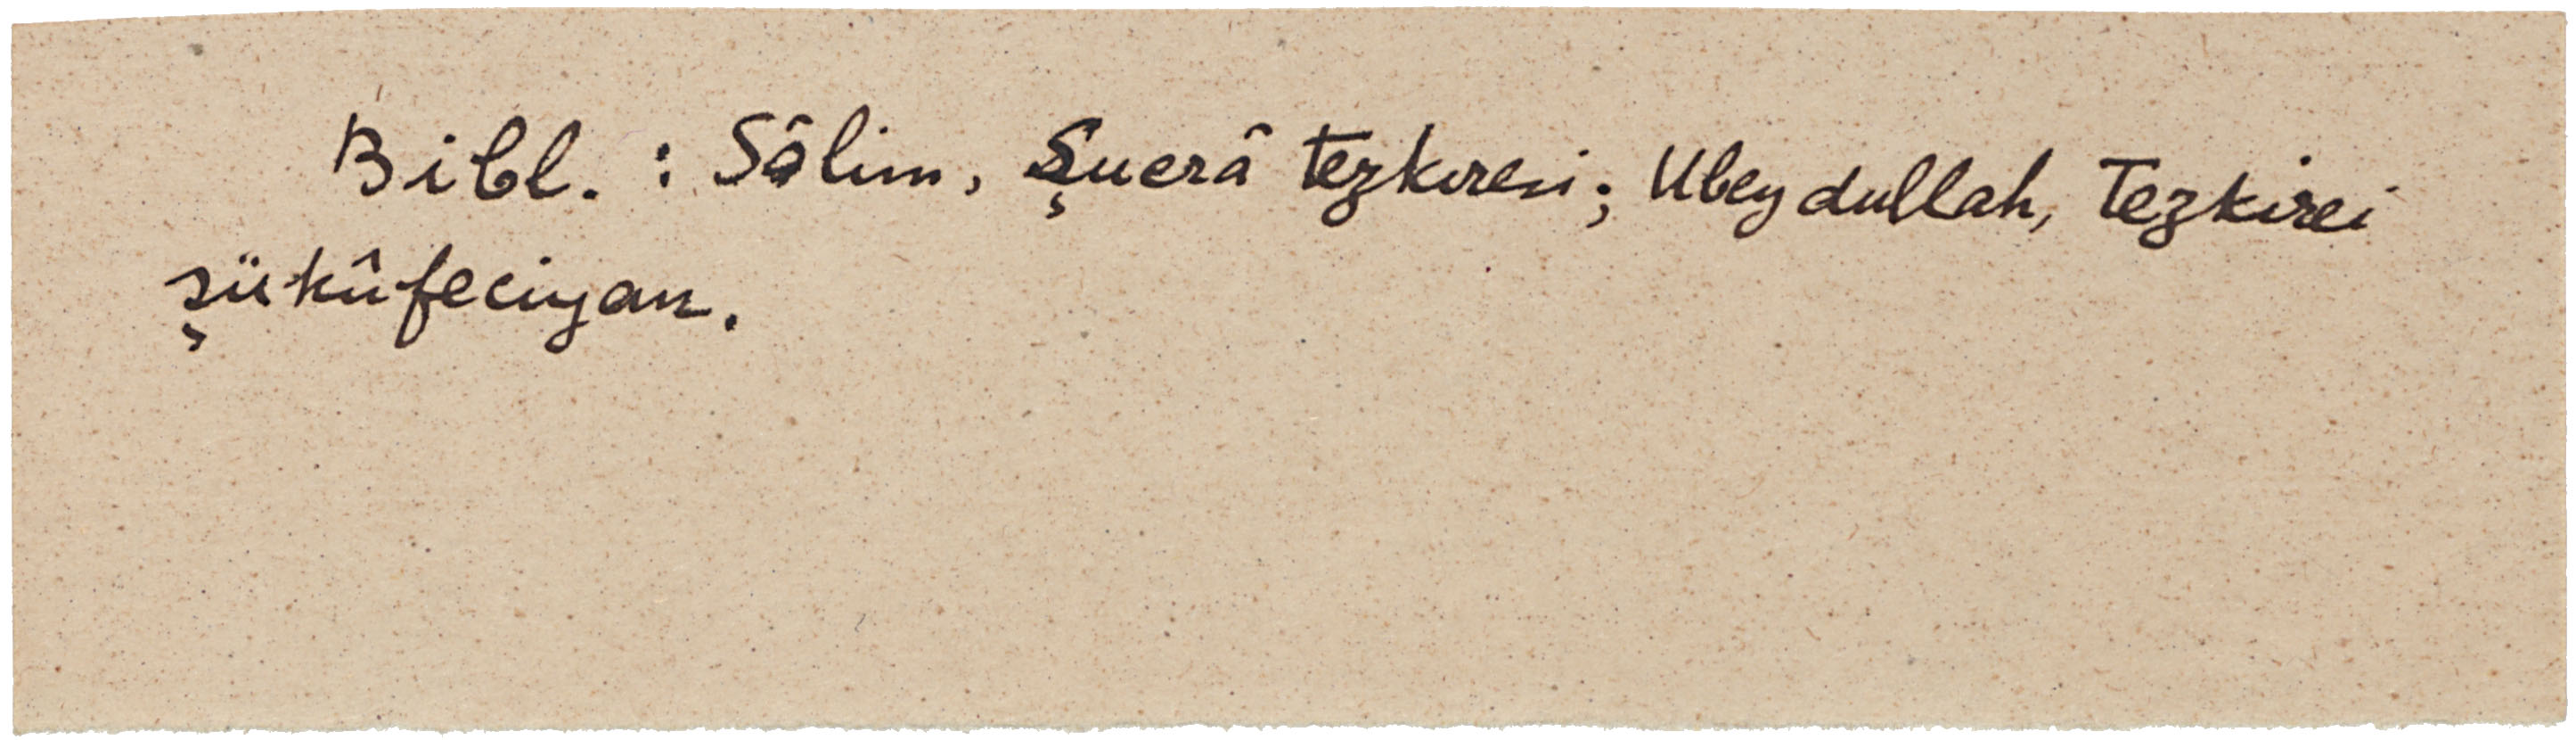 Bibl. : Sâlim, Şuerâ tezkiresi; Ubeydullah, Tezkirei
şükûfeciyan.